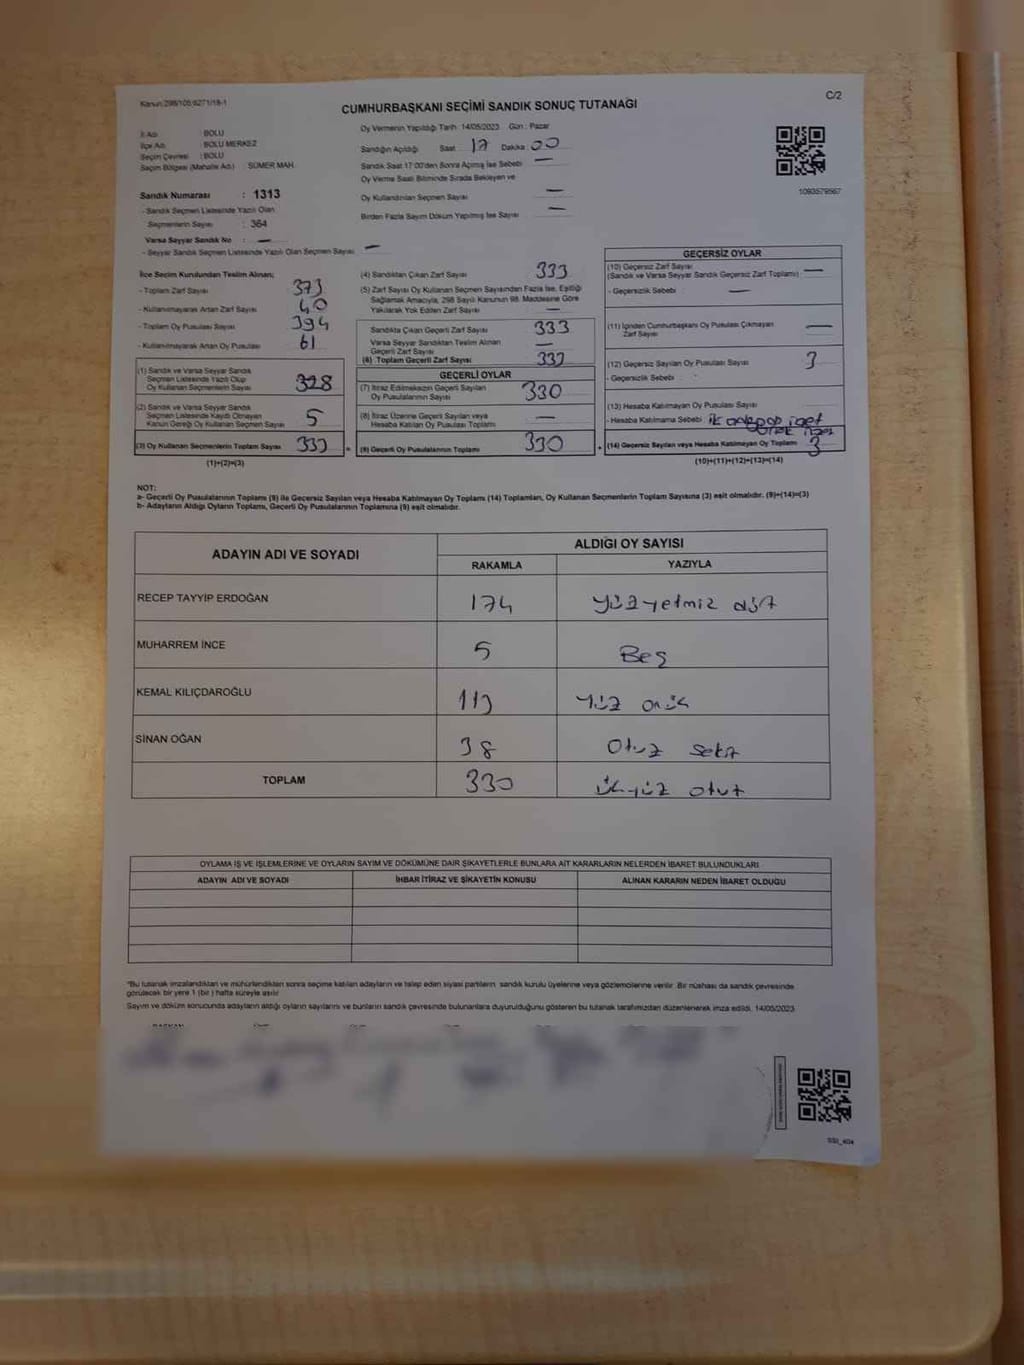 Kanun:298/105;6271/18-1
C/2
CUMHURBAŞKANI SEÇİMİ SANDIK SONUÇ TUTANAĞI
İl Adı : BOLU
İlçe Adı : BOLU MERKEZ
Seçim Çevresi : BOLU
Seçim Bölgesi (Mahalle Adı) : SÜMER MAH.
Sandık Numarası : 1313
- Sandık Seçmen Listesinde Yazılı Olan
Seçmenlerin Sayısı : 364
Varsa Seyyar Sandık No : —
- Seyyar Sandık Seçmen Listesinde Yazılı Olan Seçmen Sayısı —
Oy Vermenin Yapıldığı Tarih : 14/05/2023 Gün : Pazar
Sandığın Açıldığı Saat : 17 Dakika : 00
Sandık Saat 17:00'den Sonra Açılmış İse Sebebi —
Oy Verme Saati Bitiminde Sırada Bekleyen ve
Oy Kullandırılan Seçmen Sayısı —
Birden Fazla Sayım Döküm Yapılmış İse Sayısı —
1093579567
İlçe Seçim Kurulundan Teslim Alınan;
- Toplam Zarf Sayısı 373
- Kullanılmayarak Artan Zarf Sayısı 40
- Toplam Oy Pusulası Sayısı 394
- Kullanılmayarak Artan Oy Pusulası 61
(1) Sandık ve Varsa Seyyar Sandık
Seçmen Listesinde Yazılı Olup
Oy Kullanan Seçmenlerin Sayısı 328
(2) Sandık ve Varsa Seyyar Sandık
Seçmen Listesinde Kaydı Olmayan
Kanun Gereği Oy Kullanan Seçmen Sayısı 5
(3) Oy Kullanan Seçmenlerin Toplam Sayısı 333 =
(1)+(2)=(3)
(4) Sandıktan Çıkan Zarf Sayısı 333
(5) Zarf Sayısı Oy Kullanan Seçmen Sayısından Fazla İse, Eşitliği
Sağlamak Amacıyla, 298 Sayılı Kanunun 98. Maddesine Göre
Yakılarak Yok Edilen Zarf Sayısı —
Sandıkta Çıkan Geçerli Zarf Sayısı 333
Varsa Seyyar Sandıktan Teslim Alınan
Geçerli Zarf Sayısı —
(6) Toplam Geçerli Zarf Sayısı 333
GEÇERLİ OYLAR
(7) İtiraz Edilmeksizin Geçerli Sayılan
Oy Pusulasının Sayısı 330
(8) İtiraz Üzerine Geçerli Sayılan veya
Hesaba Katılan Oy Pusulası Toplamı —
(9) Geçerli Oy Pusulalarının Toplamı 330 +
GEÇERSİZ OYLAR
(10) Geçersiz Zarf Sayısı
(Sandık ve Varsa Seyyar Sandık Geçersiz Zarf Toplamı) —
- Geçersizlik Sebebi : —
(11) İçinden Cumhurbaşkanı Oy Pusulası Çıkmayan
Zarf Sayısı —
(12) Geçersiz Sayılan Oy Pusulası Sayısı 3
- Geçersizlik Sebebi :
(13) Hesaba Katılmayan Oy Pusulası Sayısı
- Hesaba Katılmama Sebebi :
(14) Geçersiz Sayılan veya Hesaba Katılmayan Oy Toplamı 3
(10)+(11)+(12)+(13)=(14)
NOT:
a- Geçerli Oy Pusulalarının Toplamı (9) ile Geçersiz Sayılan veya Hesaba Katılmayan Oy Toplamı (14) Toplamları, Oy Kullanan Seçmenlerin Toplam Sayısına (3) eşit olmalıdır. (9)+(14)=(3)
b- Adayların Aldığı Oyların Toplamı, Geçerli Oy Pusulalarının Toplamına (9) eşit olmalıdır.
ADAYIN ADI VE SOYADI
ALDIĞI OY SAYISI
RAKAMLA YAZIYLA
RECEP TAYYİP ERDOĞAN 174 yüzyetmiz dört
MUHARREM İNCE 5 Beş
KEMAL KILIÇDAROĞLU 113 yüz onüç
SİNAN OĞAN 38 Otuz sekiz
TOPLAM 330 üçyüz otuz
OYLAMA İŞ VE İŞLEMLERİNE VE OYLARIN SAYIM VE DÖKÜMÜNE DAİR ŞİKAYETLERLE BUNLARA AİT KARARLARIN NELERDEN İBARET BULUNDUKLARI
ADAYIN ADI VE SOYADI İHBAR İTİRAZ VE ŞİKAYETİN KONUSU ALINAN KARARIN NEDEN İBARET OLDUĞU
*Bu tutanak imzalandıktan ve mühürlendikten sonra seçime katılan adayların ve talep eden siyasi partilerin sandık kurulu üyelerine veya gözlemcilerine verilir. Bir nüshası da sandık çevresinde
görülecek bir yere 1 (bir) hafta süreyle asılır.
Sayım ve döküm sonucunda adayların aldığı oyların sayılarını ve bunların sandık çevresinde bulunanlara duyurulduğunu gösteren bu tutanak tarafımızdan düzenlenerek imza edildi. 14/05/2023